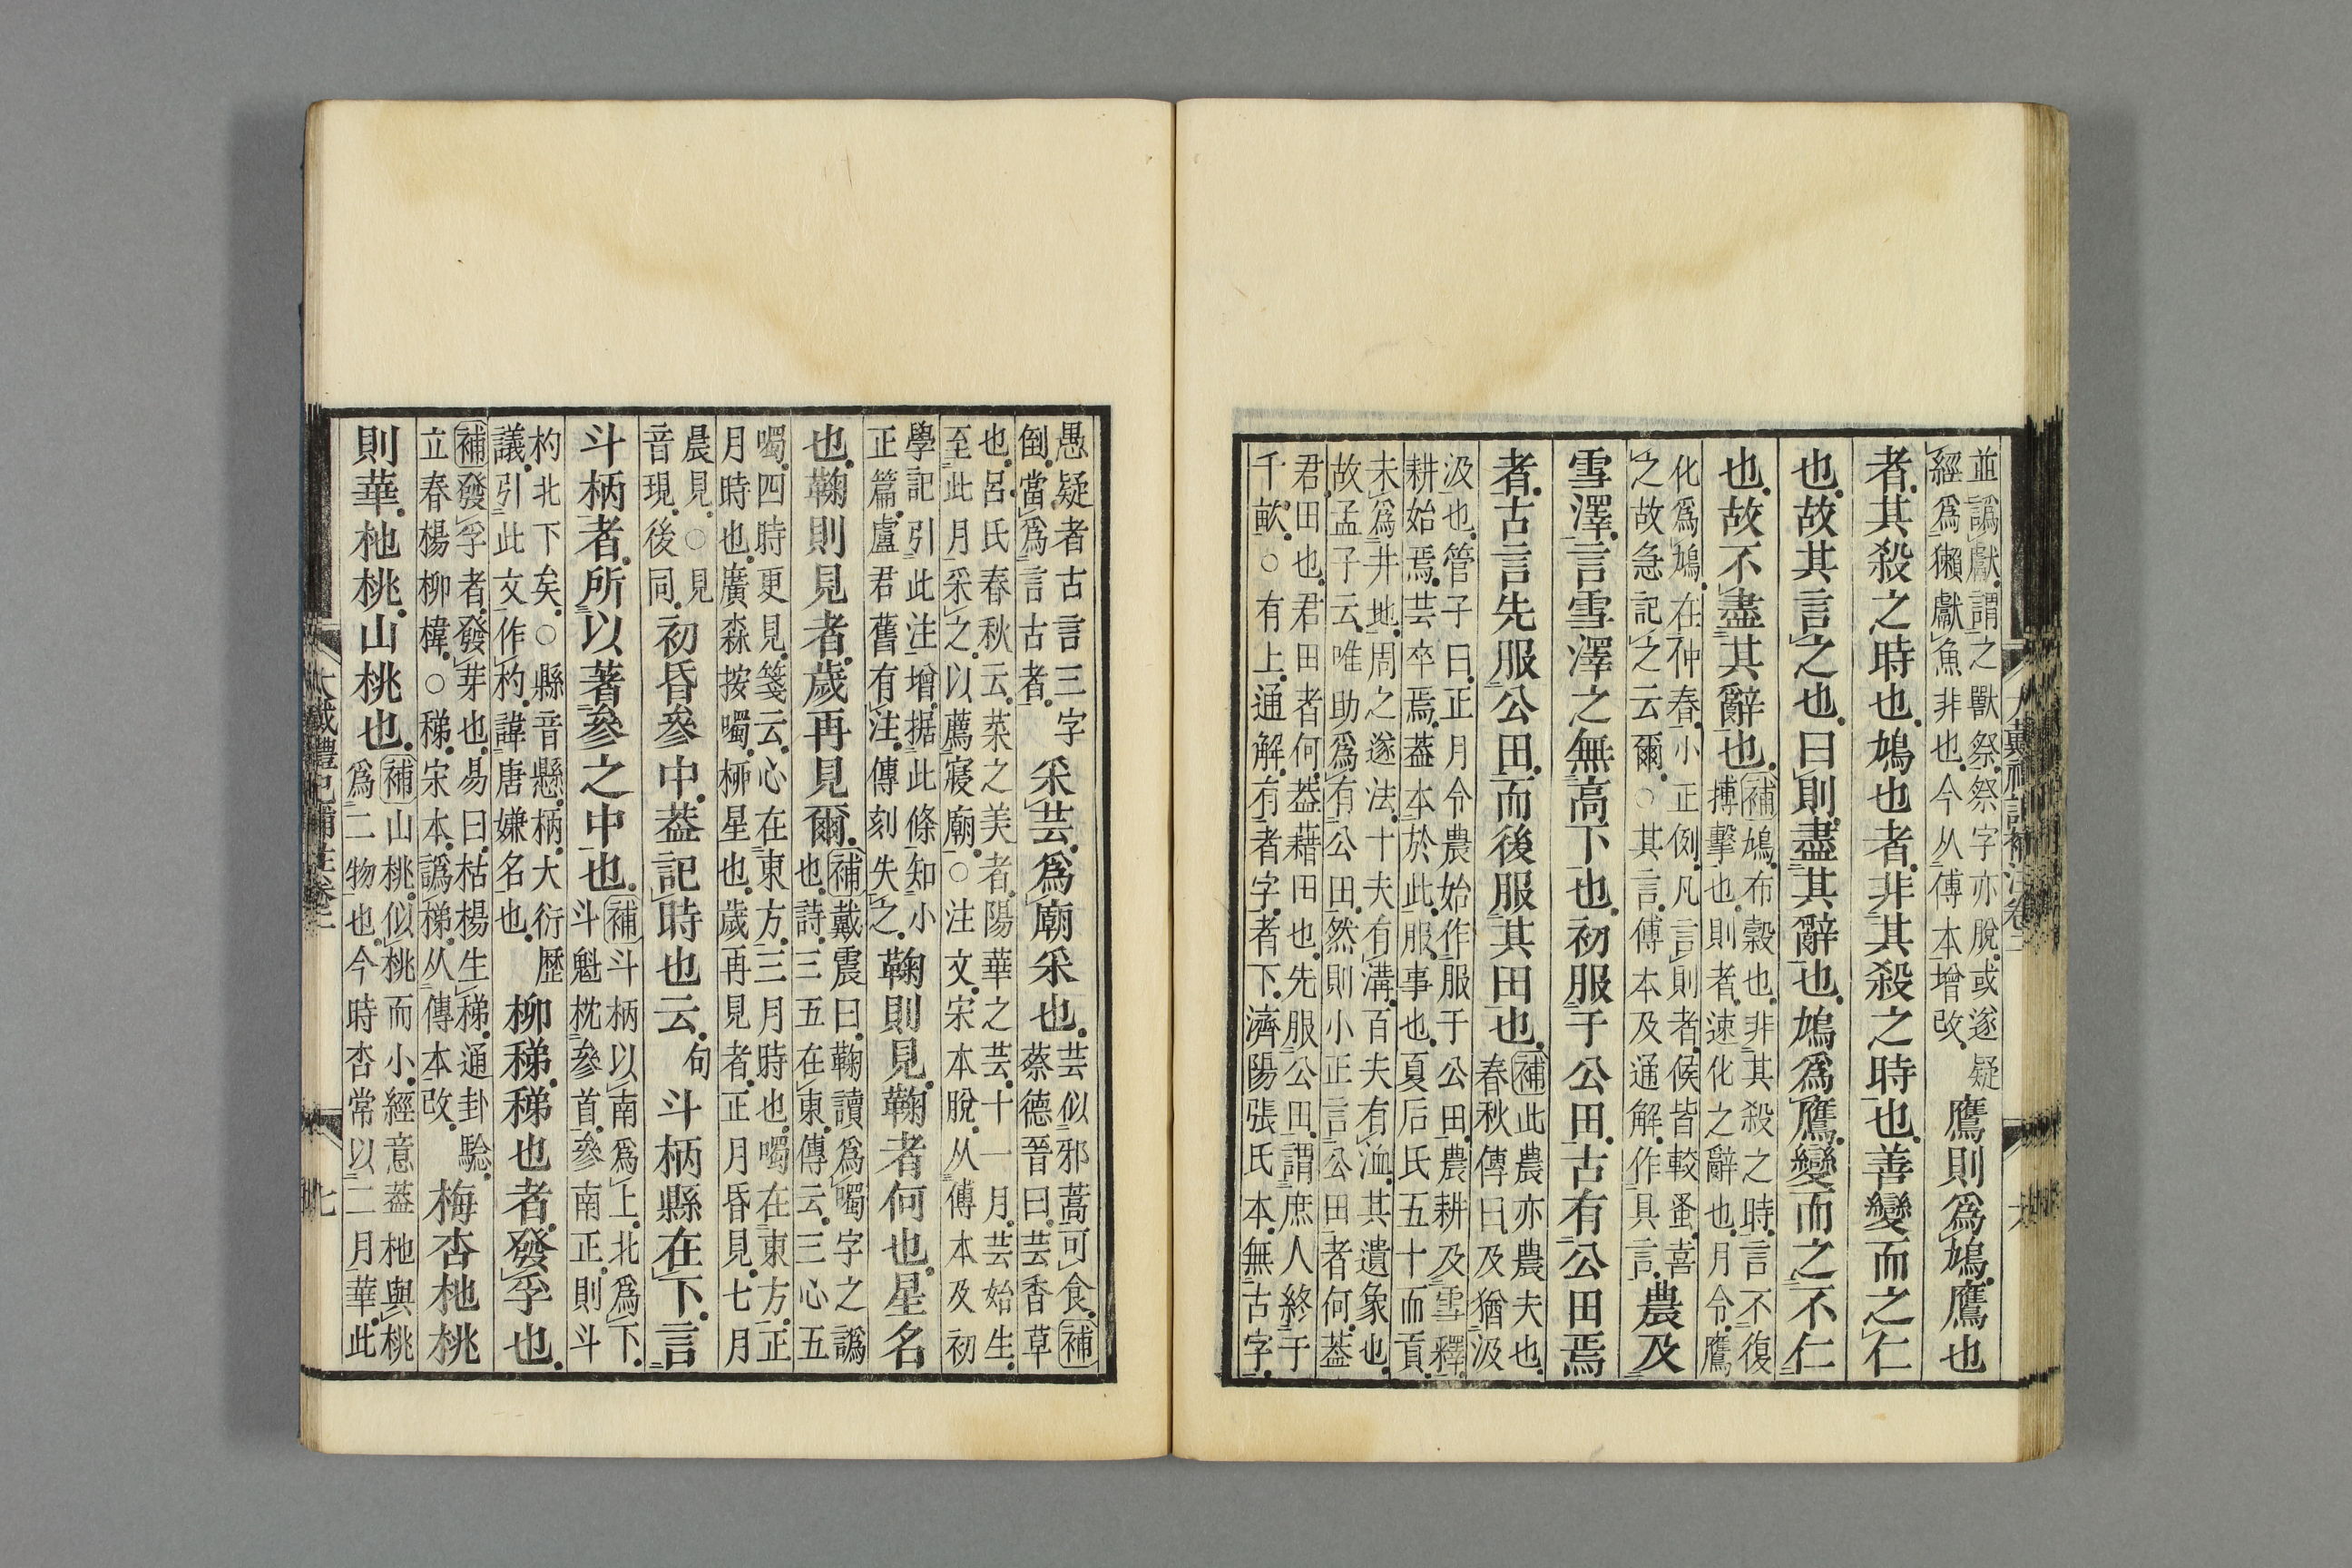 並譌獻。謂之獸祭。祭字亦脫。或遂疑
經爲獺獻魚非也。今从傅本增改。
鷹則爲鳩。鷹也
者。其殺之時也。鳩也者。非其殺之時也。善變而之仁
也。故其言之也。曰則。盡其辭也。鳩爲鷹。變而之不仁
也。故不盡其辭也。
補鳩。布穀也。非其殺之時。言不復
搏擊也。則者。速化之辭也。月令。鷹
化爲鳩。在仲春。小正例。凡言則者。候皆較蚤。喜
之故急記之云爾。○其言。傅本及通解。作具言。
農及
雪澤。言雪澤之無高下也。初服于公田。古有公田焉
者。古言先服公田。而後服其田也。
補此農亦農夫也。
春秋傳曰。及猶汲
汲也。管子曰。正月令農始作。服于公田。農耕及雪釋。
耕始焉。芸卒焉。葢本於此。服。事也。夏后氏五十而貢。
未爲井地。周之遂法。十夫有溝。百夫有洫。其遺象也。
故孟子云。唯助爲有公田。然則小正言公田者何。葢
君田也。君田者何。葢藉田也。先服公田。謂庶人終于
千畝。○有上。通解。有者字。者下。濟陽張氏本。無古字。
大戴禮記補注卷二
六
愚疑者古言三字
倒。當爲言古者。
采芸。爲廟采也。
芸似邪蒿可食。補
蔡德晉曰。芸香草
也。呂氏春秋云。菜之美者。陽華之芸。十一月。芸始生。
至此月采之。以薦寢廟。○注文。宋本脫。从傅本及初
學記引此注增。据此條。知小
正篇。盧君舊有注。傳刻失之。
鞠則見。鞠者何也。星名
也。鞠則見者。歲再見爾。
補戴震曰。鞠讀爲噣。字之譌
也。詩。三五在東。傳云。三心五
噣。四時更見。箋云。心在東方。三月時也。噣在東方。正
月時也。廣森按噣。桺星也。歲再見者。正月昏見。七月
晨見。○見
音現。後同。
初昏參中。葢記時也云。
句
斗柄縣在下。言
斗柄者。所以著參之中也。
補斗柄以南爲上。北爲下。
斗魁枕參首。參南正。則斗
杓北下矣。○縣音懸。柄。大衍歷
議。引此文作杓。諱唐嫌名也。
柳稊。稊也者。發孚也。
補發孚者。發芽也。易曰。枯楊生稊。通卦驗。
立春楊柳樟。○稊。宋本。譌梯。从傅本改。
梅杏杝桃
則華。杝桃。山桃也。
補山桃。似桃而小。經意葢杝與桃
爲二物也。今時杏常以二月華。此
大戴禮記補注卷二
七